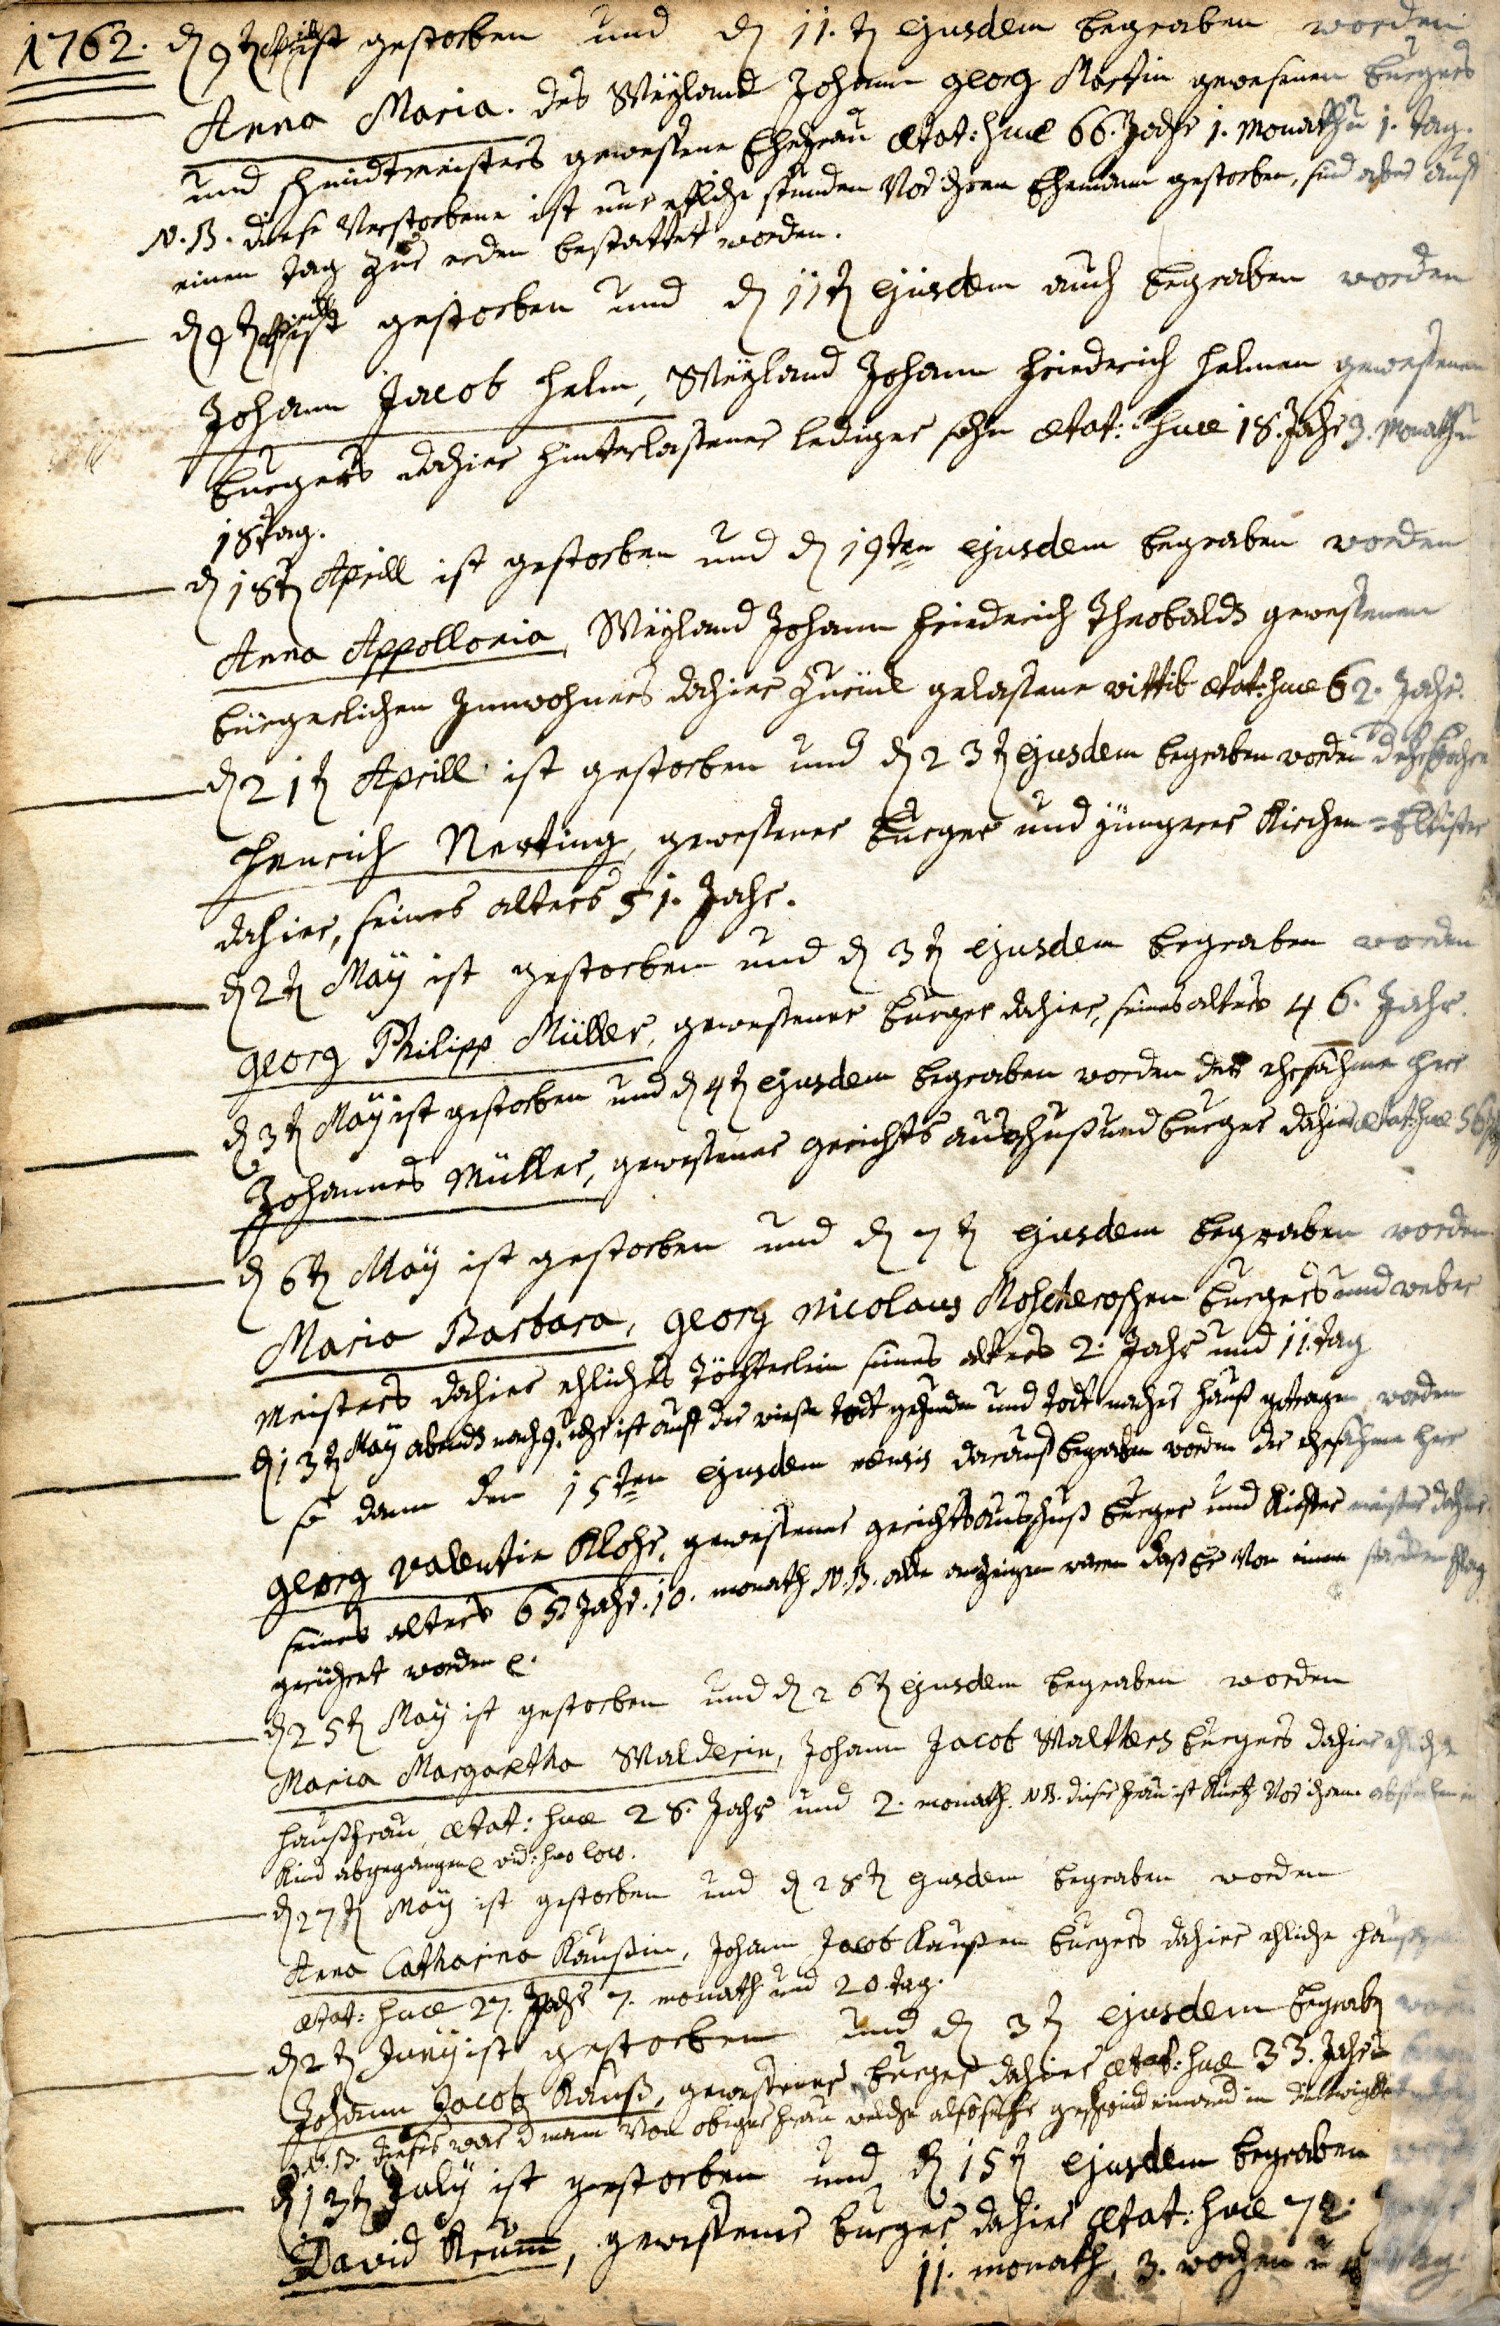 1762. d 9t Aprill ist gestorben und d 11.t ejusdem begraben worden
Anna Maria. des Weyland Johann Georg Martin gewesenen burgers
und schmidtmeisters gewesene Ehefrau ætat: suæ 66. Jahr 1. Monath u 1. tag.
N.B. diese Verstorbene ist nur etliche stunden Vor ihrem Ehemann gestorben, sind aber auf
einen tag zur erden bestattet worden.
d 9t Aprill ist gestorben und d 11t ejusdem auch begraben worden
Johann Jacob Helm, Weyland Johann Friedrich Helmen gewesenen
burgers dahier hinterlassener lediger sohn ætat: suæ 18. Jahr 3. Monath u
18 tag.
d 18t Aprill ist gestorben und d 19ten ejusdem begraben worden
Anna Appollonia, Weyland Johann Friedrich Theobalds gewesenen
bürgerlichen Innwohners dahier zurück gelassene wittib ætat: suæ 62. Jahr.
d 21t Aprill ist gestorben und d 23t ejusdem begraben worden
Henrich Nerting, gewesener burger und jüngerer Kirchen=Eltister
dahier, seines alters 51. Jahr.
d 2t May ist gestorben und d 3t ejusdem begraben worden
Georg Philipp Müller, gewesener burger dahier, seines alters 46. Jahr.
d 3t May ist gestorben und d 4t ejusdem begraben worden der ehrsahme Herr
Johannes Müller, gewesener gerichts ausschuß und burger dahier ætat: suæ 56
d 6t May ist gestorben und d 7t ejusdem begraben worden
Maria Barbara, Georg Nicolaus Moscheroschen burgers und weber
meisters dahier ehliches Töchterlein seines alters 2. Jahr und 11. tag
d 13t May abends nach 9. uhr ist auf der wiese todt gefunden und todt nacher hauß getragen worden
so dann den 15ten ejusdem mensis darauf begraben worden der ehrsahme Herr
Georg Valentin Klohr, gewesener gerichts ausschuß burger und Kiefer meister dahier
seines alters 65 Jahr. 10. monath N.B. alle anzeigen waren daß Er Von einem starcken schlag
gerühret worden e.
d 25t May ist gestorben und d 26t ejusdem begraben worden
Maria Margaretha Walderin, Johann Jacob Walthers burgers dahier ehliche
haußfrau, ætat: suæ 28. Jahr und 2. monath. N.B. dieser frau ist kurtz Vor ihrem absterben ein
Kind abgegangen e vid: suo loco.
d 27t May ist gestorben und d 28t ejusdem begraben worden
Anna Catharina Kaußin, Johann Jacob Kaußen burgers dahier ehliche haußfrau
ætat: suæ 27. Jahr 7. monath und 20. tag.
d 2t Juny ist gestorben und d 3t ejusdem begrab
Johann Jacob Kauß, gewesener burger dahier ætat: suæ 33. Jahr
N.B. dieser war d mann Von obiger frau welche also sehr geschwind einand in die Ewigkeit
d 13t July ist gestorben und d 15t ejusdem begraben
David Krum, gewesener burger dahier ætat: suæ 72.
11. monath, 3. wochen u tag.